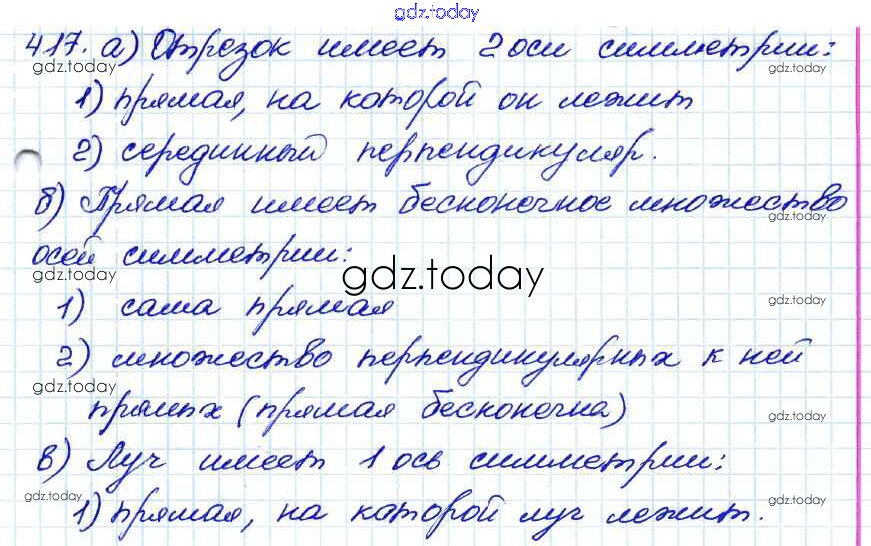 gdz.today
417. а) Отрезок имеет 2 оси симметрии:
gdz.today
gdz.today
1) прямая, на которой он лежит
2) серединный перпендикуляр.
gdz.today
gdz.today
б) Прямая имеет бесконечное множество
gdz.today
осей симметрии:
gdz.today
gdz.today
1) сама прямая
gdz.today
2) множество перпендикулярных к ней
gdz.today
прямых (прямая бесконечна)
gdz.today
в) Луч имеет 1 ось симметрии:
gdz.today
gdz.today
1) прямая, на которой луч лежит.